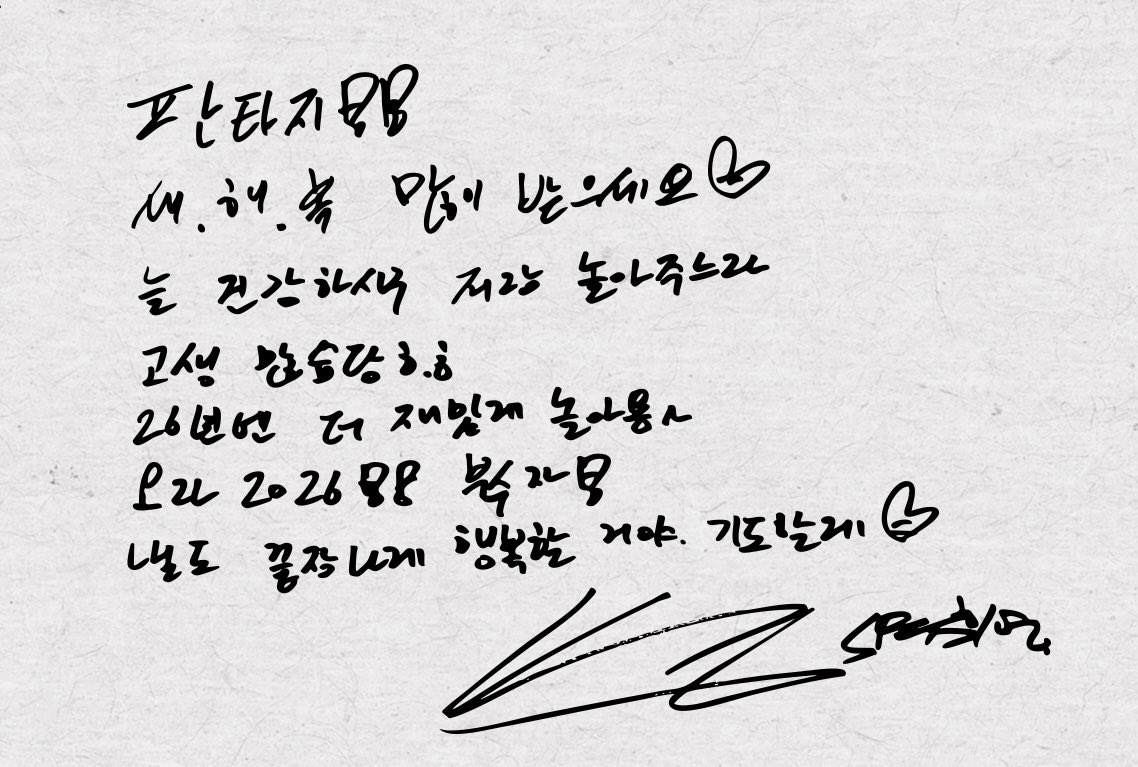 판타지
새.해.복 많이 받으세요
늘 건강하시구 저랑 놀아주느라
고생 많슴당 ㅎ.ㅎ
26년엔 더 재밌게 놀아용ㅅ
오라 2026 부수자
낼도 끝장나게 행복할 거야. 기도할게